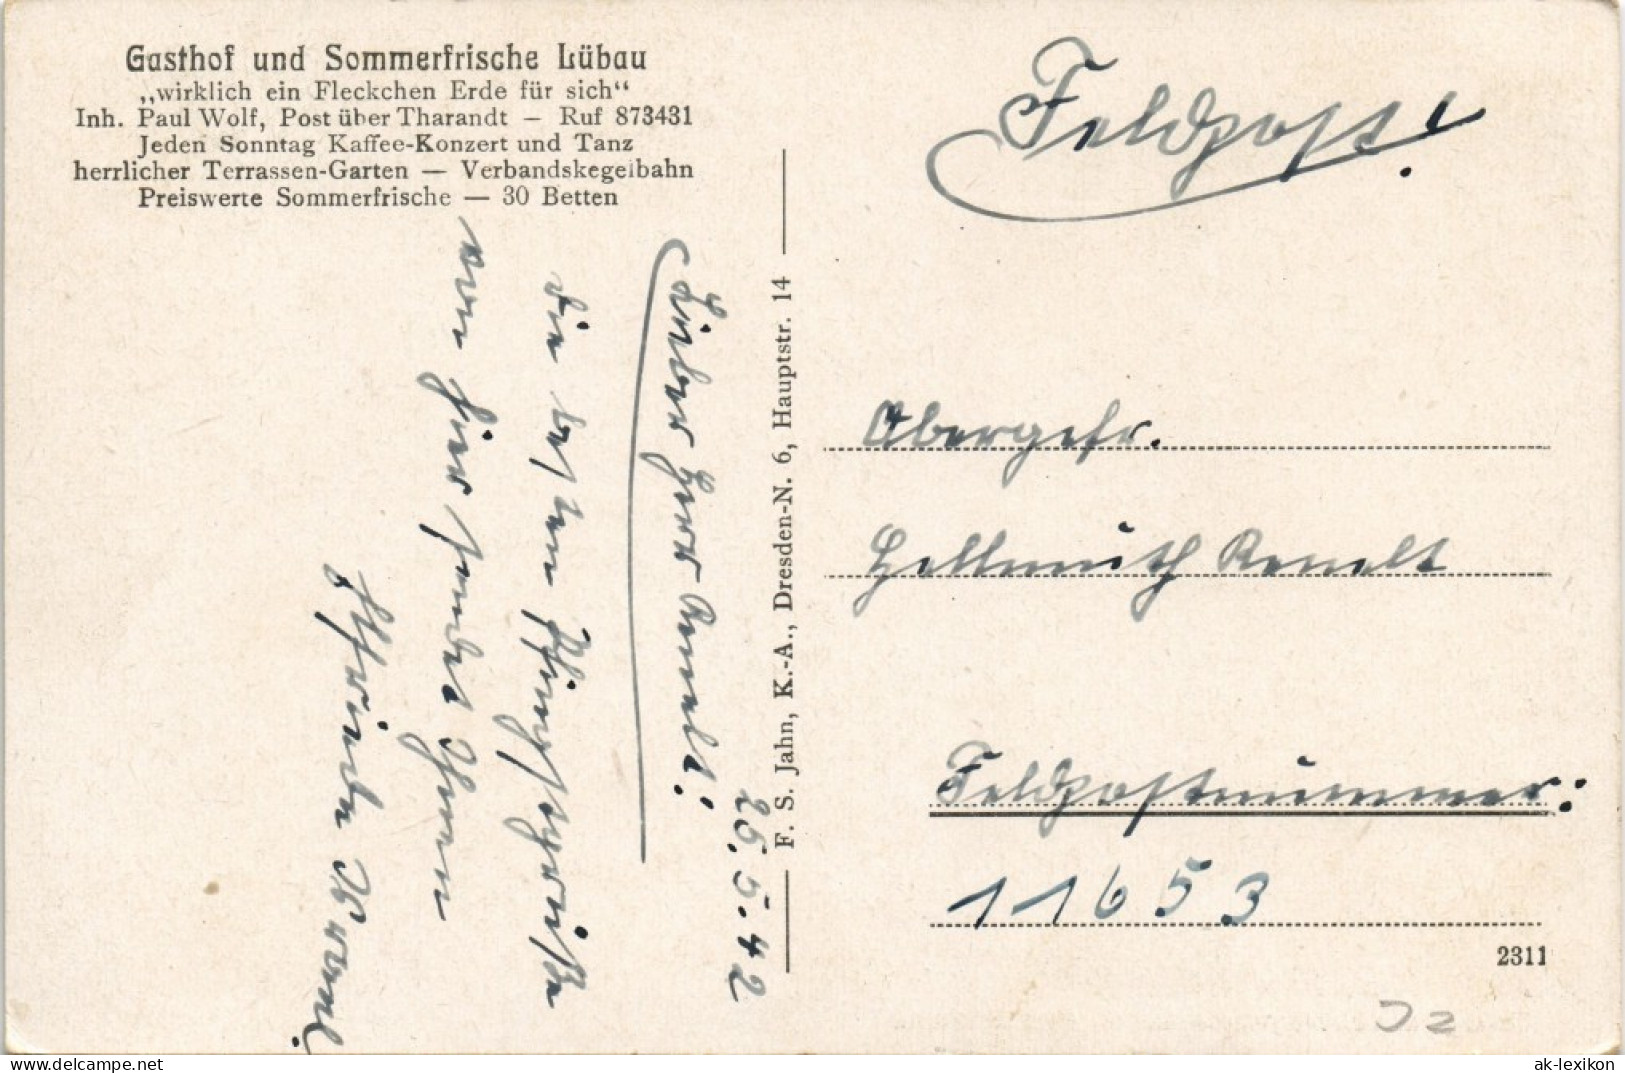 Gasthof und Sommerfrische Lübau
„wirklich ein Fleckchen Erde für sich“
Inh. Paul Wolf, Post über Tharandt — Ruf 873431
Jeden Sonntag Kaffee-Konzert und Tanz
herrlicher Terrassen-Garten — Verbandskegelbahn
Preiswerte Sommerfrische — 30 Betten
25.5.42
Lieber Herr Renelt!
die besten Pfingstgrüße
von hier sendet Ihnen
F. S. Jahn, K.-A., Dresden-N. 6, Hauptstr. 14
Feldpost!
Obergefr.
Hellmuth Renelt
Feldpostnummer:
11653
2311
delcampe.net
ak-lexikon